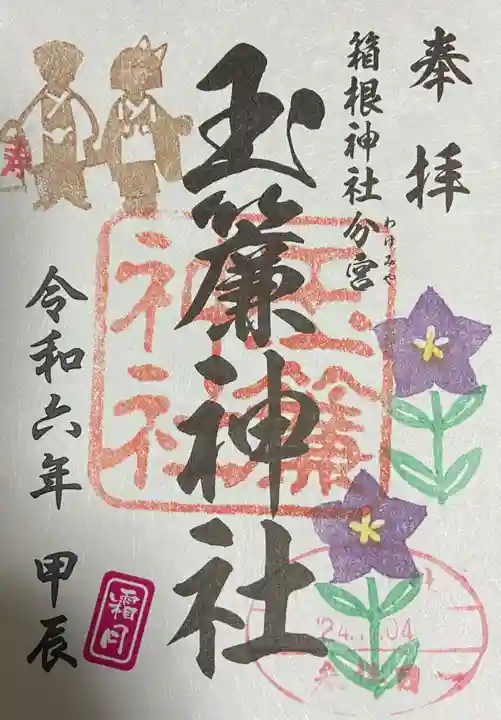 奉拝
箱根神社分宮
わけみや
玉簾神社
玉簾
神社
寿
令和六年 甲辰
霜月